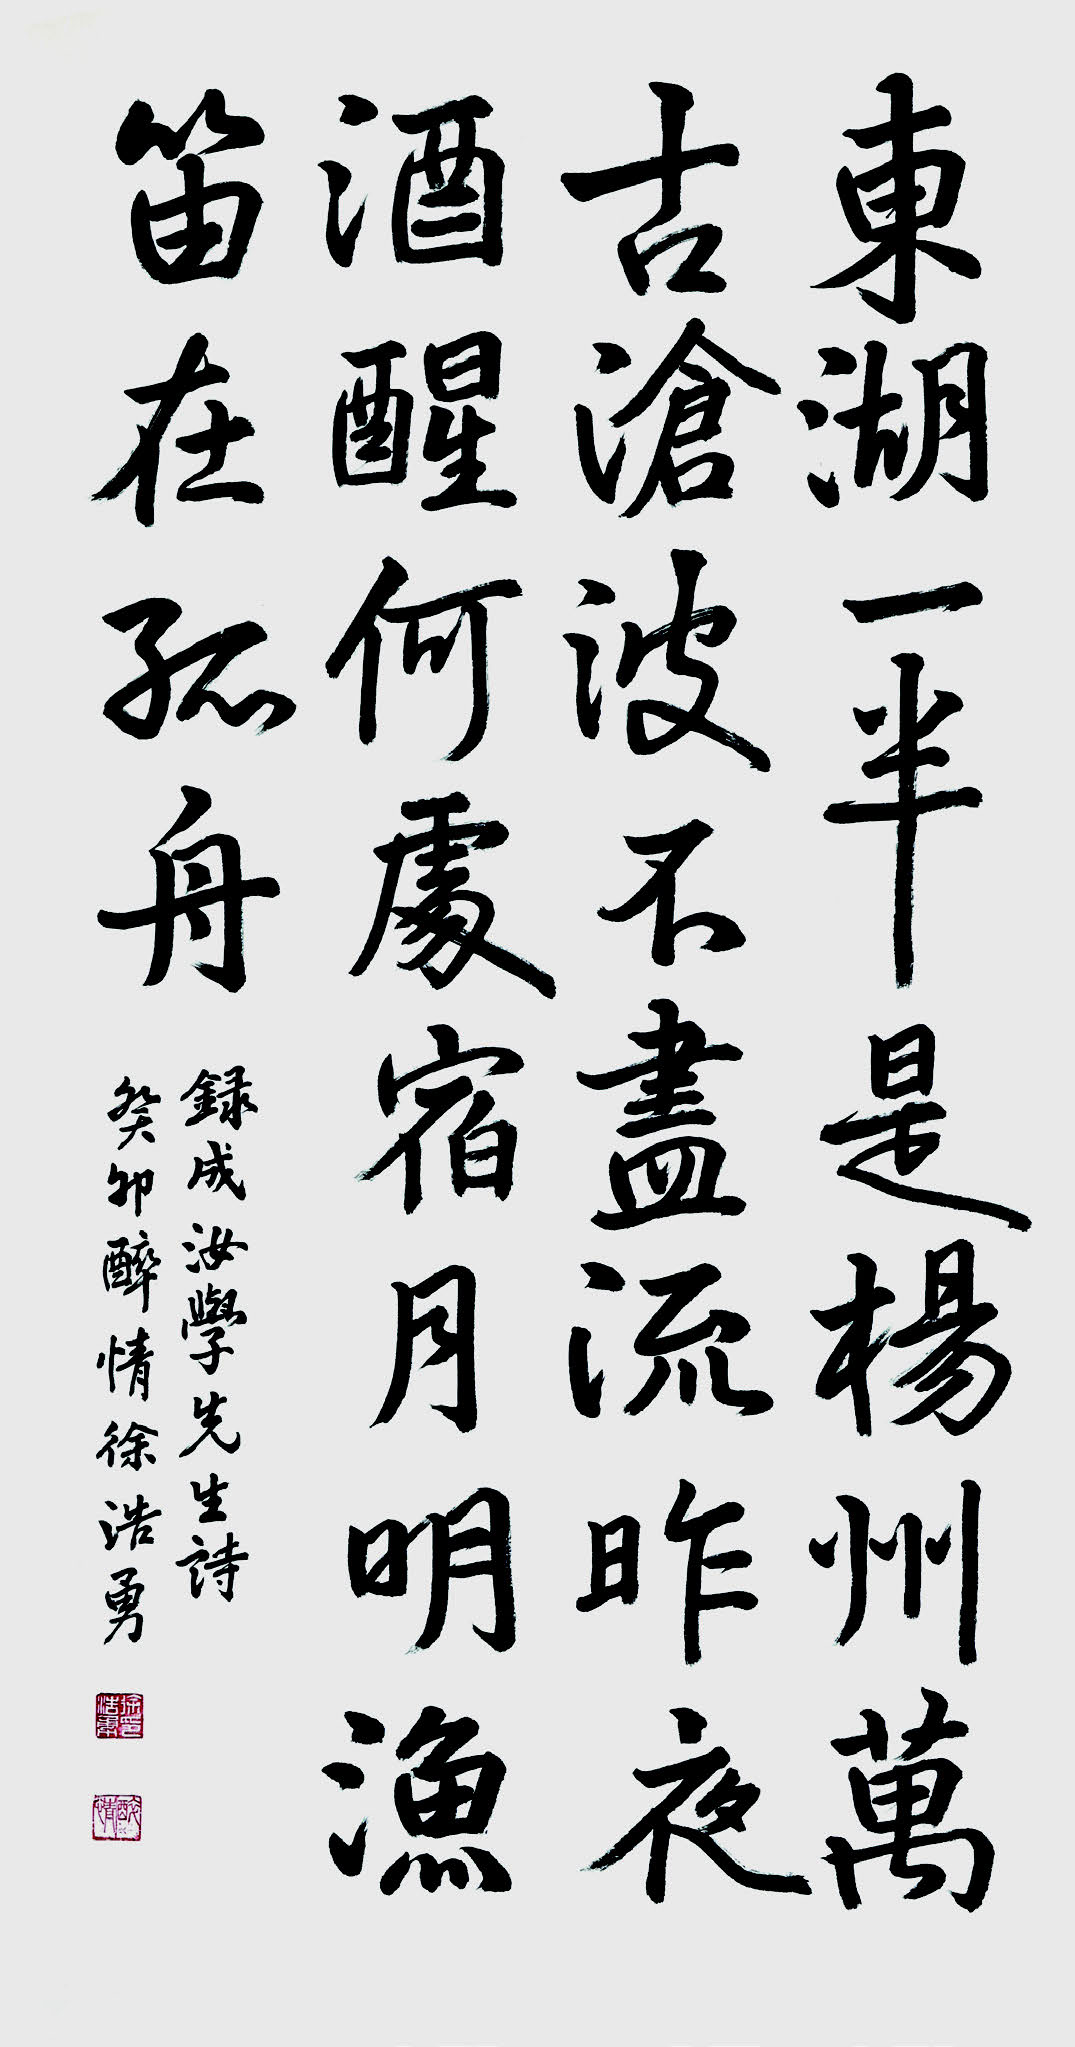 東湖一半是楊州萬
古滄波不盡流昨夜
酒醒何處宿月明漁
笛在孤舟
録成汝學先生詩
癸卯醉情徐浩勇
徐印浩勇
醉情